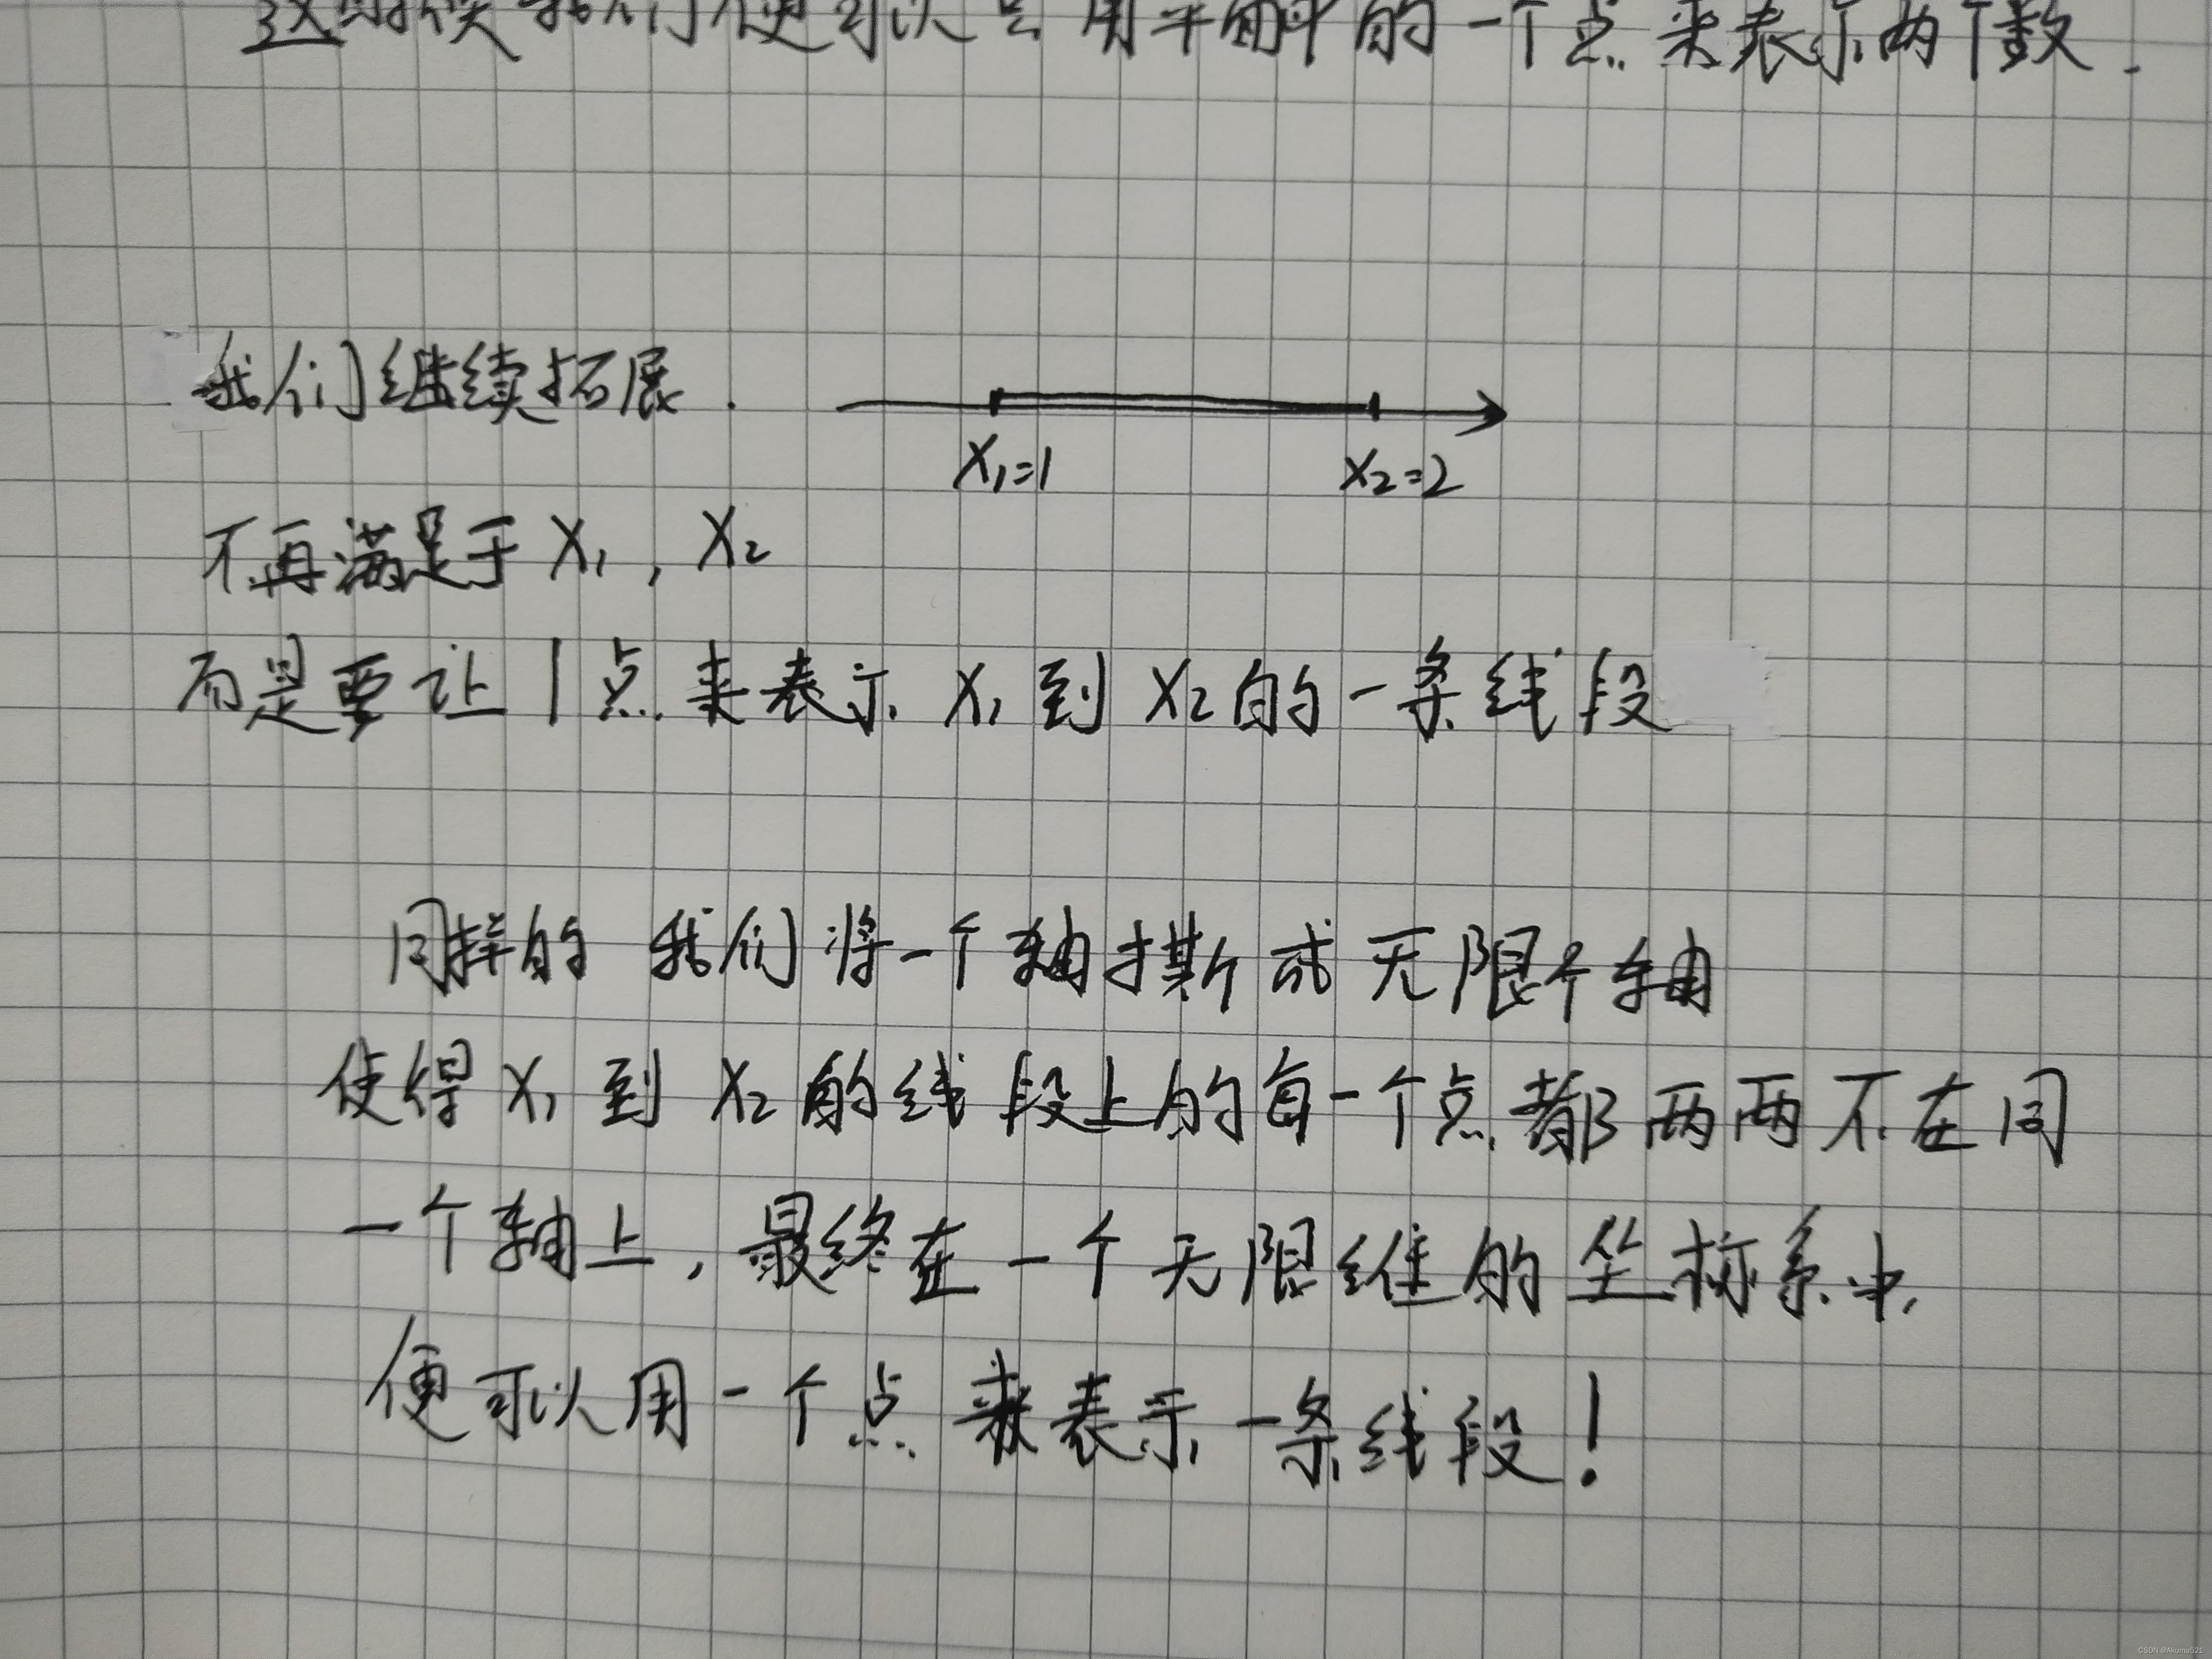 这时候我们便可以只用平面中的一个点来表示两个数.
我们继续拓展.
X₁=1 X₂=2
不再满足于 X₁, X₂
而是要让1点来表示 X₁ 到 X₂ 的一条线段
同样的 我们将一个轴撕成无限个轴
使得 X₁ 到 X₂ 的线段上的每一个点都两两不在同
一个轴上, 最终在一个无限维的坐标系中,
便可以用一个点来表示一条线段!
CSDN @Akuma521